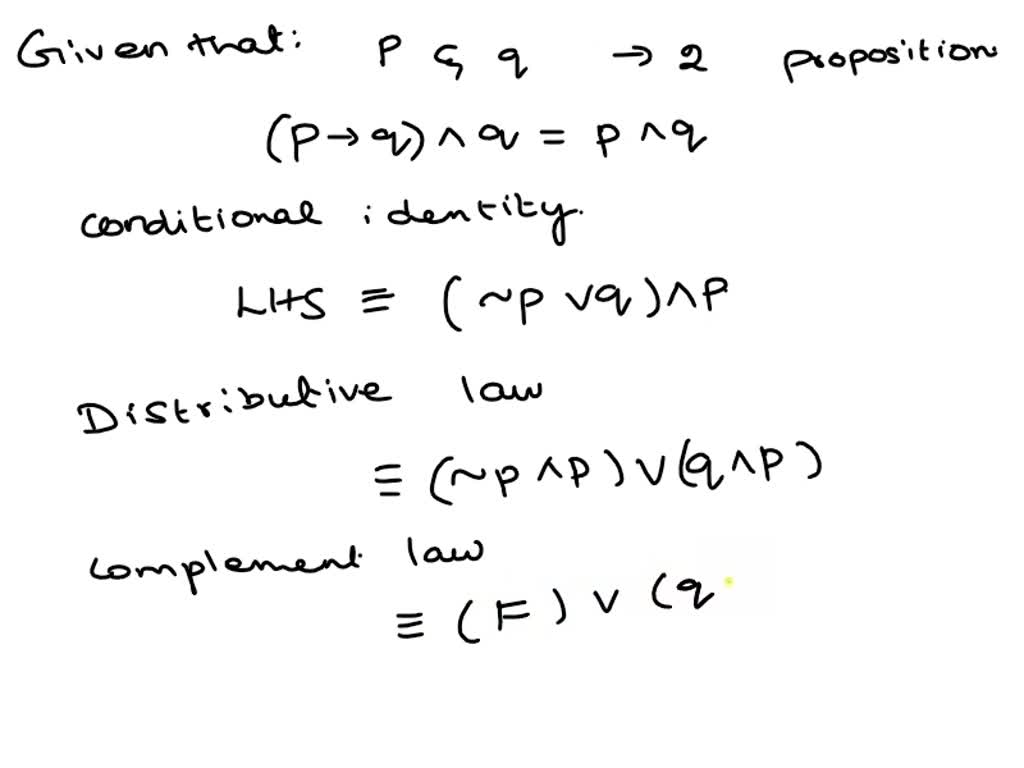 Given that: P & q → 2 proposition
(P → q) ∧ q = P ∧ q
conditional identity.
LHS ≡ (~P ∨ q) ∧ P
Distributive law
≡ (~P ∧ P) ∨ (q ∧ P)
complement law
≡ (F) ∨ (q